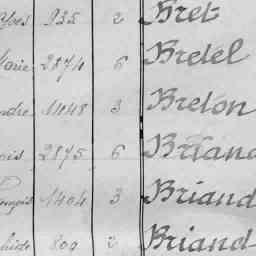 Yves 935 2 Bret
Marie 2874 6 Bretel
André 1048 3 Breton
2875 6 Briand
François 1404 3 Briand
800 2 Briand